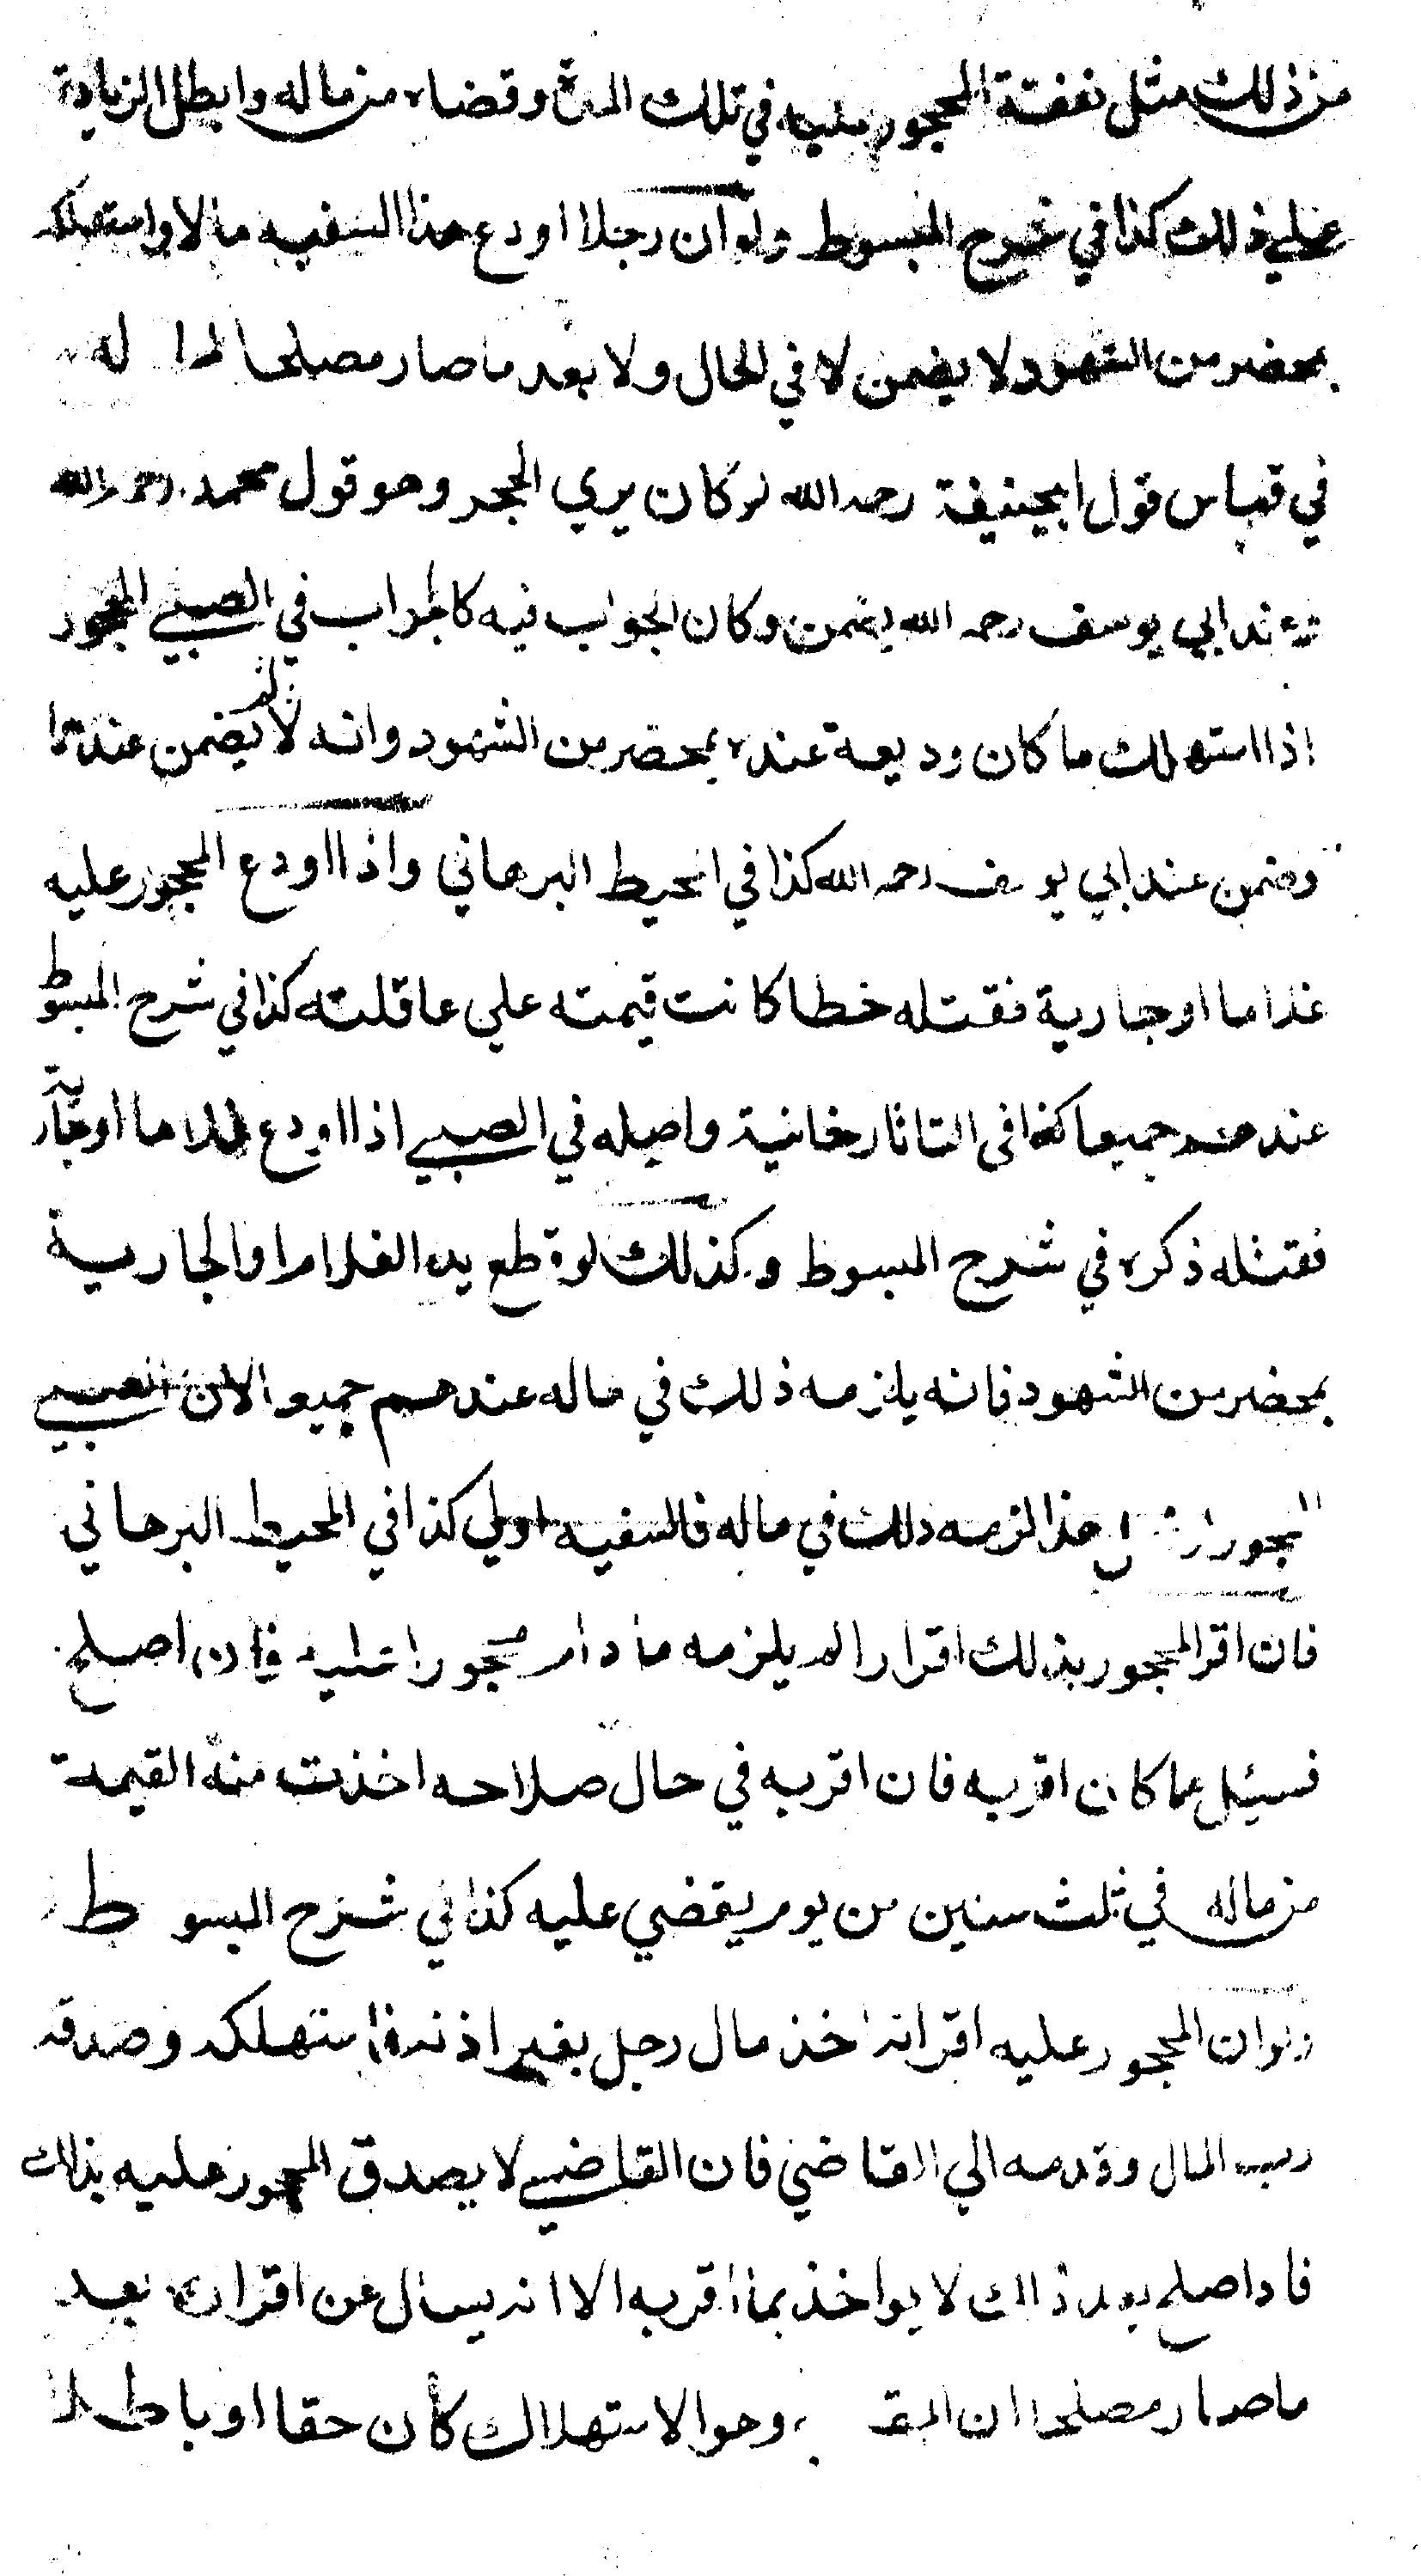 من ذلك مثل نفقة المحجور عليه في تلك المدة وقضاه من ماله وابطل الزيادة
علي ذلك كذا في شرح المبسوط ولو ان رجلا اودع هذا السفيه مالا واستهلكه
بمحضر من الشهود لا يضمن لا في الحال ولا بعد ما صار مصلحا لماله
في قياس قول ابيحنيفة رحمه الله لو كان يري الحجر وهو قول محمد رحمه الله
وعند ابي يوسف رحمه الله يضمن وكان الجواب فيه كالجواب في الصبي المحجور
اذا استهلك ما كان وديعة عنده بمحضر من الشهود وانه لا يضمن عندهما
وضمن عند ابي يوسف رحمه الله كذا في المحيط البرهاني واذا اودع المحجور عليه
غلاما او جارية فقتله خطا كانت قيمته علي عاقلته كذا في شرح المبسوط
عندهم جميعا كذا في التاتارخانية واصله في الصبي اذا اودع غلاما او جارية
فقتله ذكره في شرح المبسوط وكذلك لو قطع يد الغلام او الجارية
بمحضر من الشهود فانه يلزمه ذلك في ماله عندهم جميعا لان الصبي
المحجور هذا لزمه ذلك في ماله فالسفيه اولي كذا في المحيط البرهاني
فان اقر المحجور بذلك اقرارا لم يلزمه ما دام محجورا عليه فان اصلح
فسيئل عما كان اقر به فان اقر به في حال صلاحه اخذت منه القيمة
من ماله في ثلث سنين من يوم يقضي عليه كذا في شرح المبسوط
ولو ان المحجور عليه اقر انه اخذ مال رجل بغير اذنه فاستهلكه وصدقه
رب المال وقدمه الي القاضي فان القاضي لا يصدق المحجور عليه بذلك
فاذا صلح بعد ذلك لا يواخذ بما اقر به الا انه يسال عن اقراره بعد
ما صار مصلحا ان المقر به وهو الاستهلاك كان حقا او باطلا